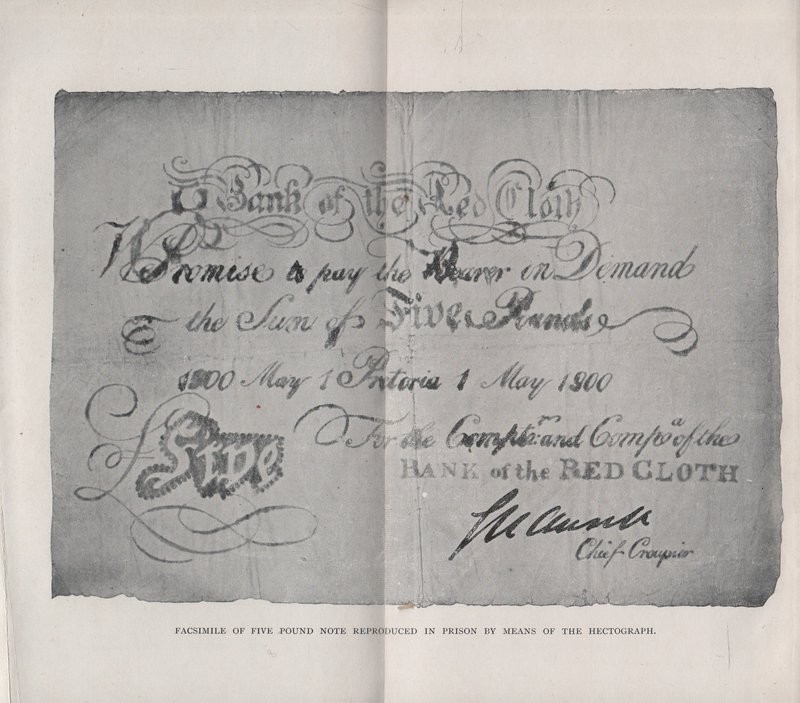 Bank of the Red Cloth
I Promise to pay the Bearer on Demand
the Sum of Five Pounds
1900 May 1 Pretoria 1 May 1900
For the Compn. and Compa. of the
BANK of the RED CLOTH
£ Five
Chief Croupier
FACSIMILE OF FIVE POUND NOTE REPRODUCED IN PRISON BY MEANS OF THE HECTOGRAPH.